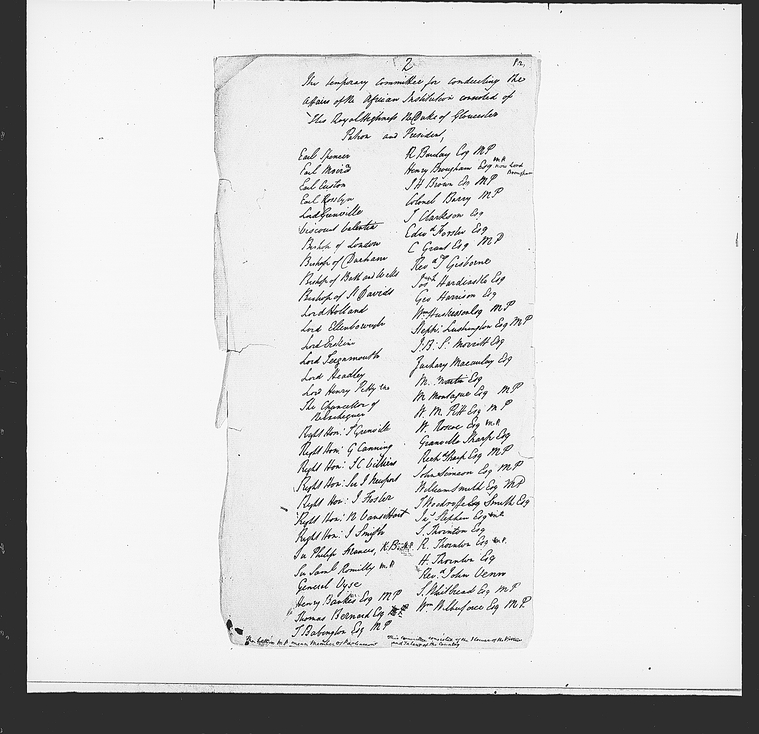 2
The temporary committee for conducting the
affairs of the African Institution consisted of
His Royal Highness the Duke of Gloucester
Patron and President,
Earl Spencer
Earl Moira
Earl Euston
Earl Rosslyn
Lord Grenville
Viscount Valentia
Bishop of London
Bishop of Durham
Bishop of Bath and Wells
Bishop of St Davids
Lord Holland
Lord Ellenborough
Lord Erskin
Lord Teignmouth
Lord Headley
Lord Henry Petty
The Chancellor of
Exchequer
Right Hon: T Grenville
Right Hon: G Canning
Right Hon: J C Villiers
Right Hon: Sir J Newport
Right Hon: J Foster
Right Hon: N Vansittart
Right Hon: J Smyth
Sir Philip Francis, K.B
Sir Saml Romilly M.P
General Vyse
Henry Bankes Esq MP
Thomas Bernard Esq
T Babington Esq MP
R Barclay Esq MP
Henry Brougham Esq MP now Lord
Brougham
I H Brown Esq MP
Colonel Barry MP
T Clarkson Esq
Edwd Forster Esq
C Grant Esq MP
Revd T Gisborne
Josh Hardcastle Esq
Geo Harrison Esq
Wm Huskesson Esq MP
Steph: Lushington Esq MP
J.B.S. Morritt Esq
Zachary Macaulay Esq
M. Martin Esq
M Montague Esq MP
W. M. Pitt Esq MP
W. Roscoe Esq M.P.
Granville Sharp Esq
Richd Sharp Esq MP
John Simeon Esq MP
William Smith Esq MP
T Woodroffe Esq Smith Esq
Jas Stephen Esq M.P
S. Thornton Esq
R. Thornton Esq M.P.
H. Thornton Esq
Revd John Venn
S. Whitbread Esq MP
Wm Wilberforce Esq MP.
M P mean Member of Parliament
This Committee consisted of the
and Talent of the Country